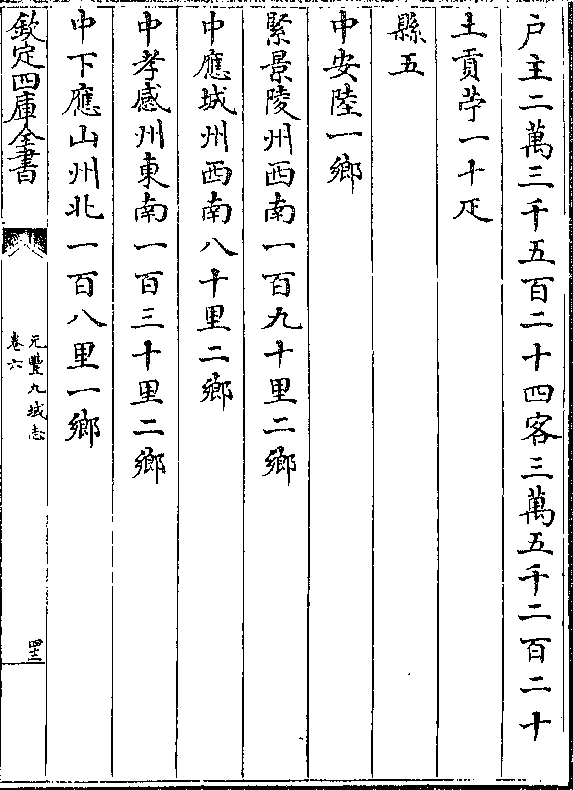 户主二萬三千五百二十四客三萬五千二百二十
土貢苧一十疋
縣五
中安陸一鄉
緊景陵州西南一百九十里二鄉
中應城州西南八十里二鄉
中孝感州東南一百三十里二鄉
中下應山州北一百八里一鄉
欽定四庫全書
元豐九域志
卷六
四三